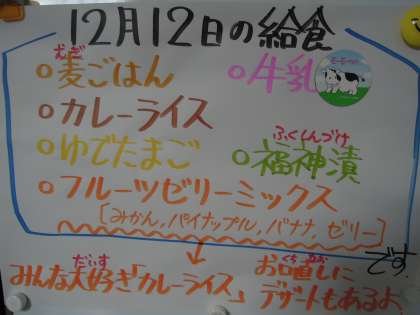 12月12日の給食
むぎ
○麦ごはん ○牛乳
○カレーライス
○ゆでたまご
ふくしんづけ
○福神漬
○フルーツゼリーミックス
[みかん,パイナップル,バナナ,ゼリー]
です
↓
だいす くち なお
みんな大好き「カレーライス」 お口直しに
デザートもあるよ、